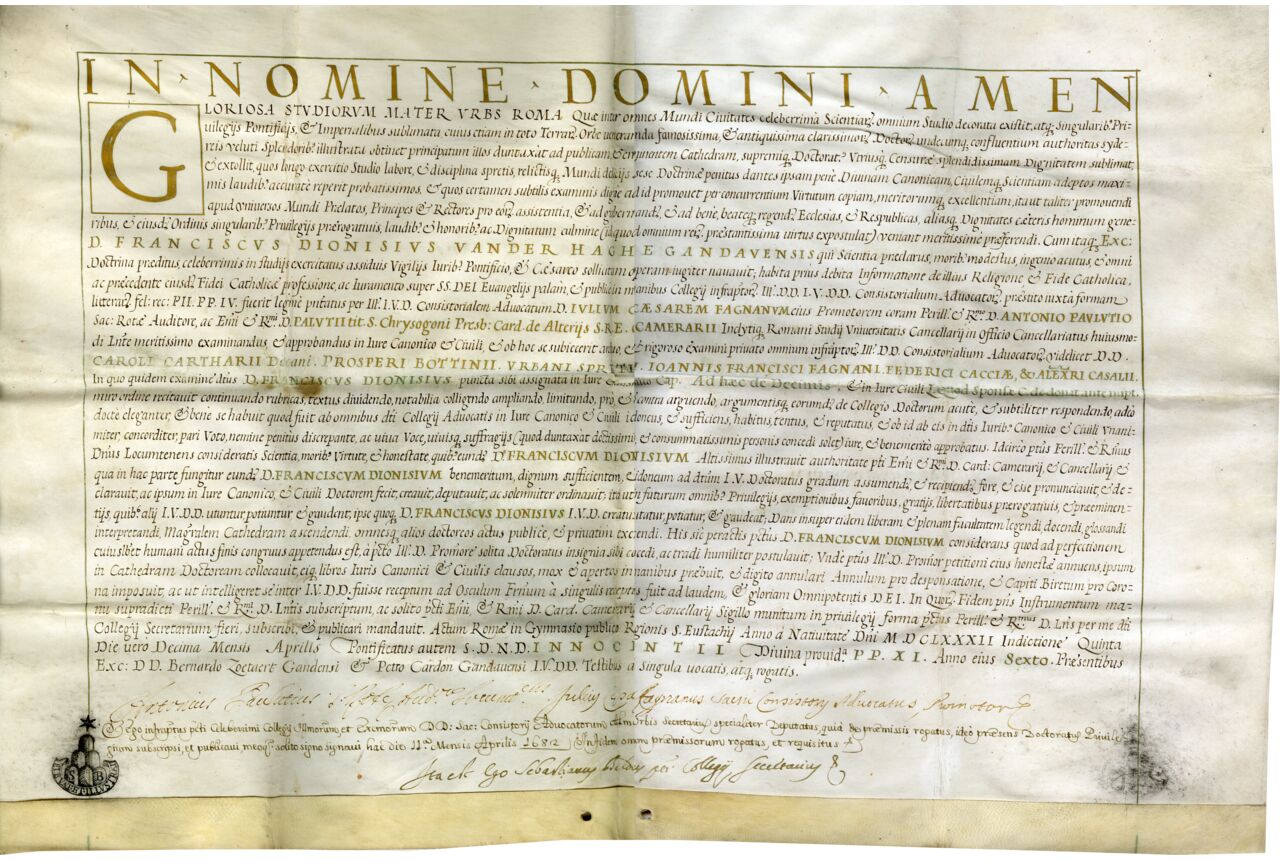 IN · NOMINE · DOMINI · AMEN
GLORIOSA STVDIORVM MATER VRBS ROMA Quæ inter omnes Mundi Civitates celeberrima Scientiar. omnium Studio decorata existit, atq. singularib. Pri-
uilegijs Pontificijs, & Imperialibus sublimata cuius etiam in toto Terrar. Orbe veneranda famosissima, & antiquissima clarissimor. Doctor. undecumq. confluentium authoritas syde-
reis veluti Splendorib. illustrata obtinet principatum illos duntaxàt ad publicam, & eminentem Cathedram, supremiq. Doctorat. Vtriusq. Censuræ splendidissimam Dignitatem sublimat,
& extollit, quos longo exercitio Studio labore, & disciplina spretis, relictisq. Mundi delicijs sese Doctrinæ penitus dantes ipsam penè Divinam Canonicam, Civilemq. Scientiam adeptos maxi-
mis laudib. accuratè reperit probatissimos, & quos certamen subtilis examinis dignè ad id promouet per concurrentium Virtutum copiam, meritorumq. excellentiam, ita ut taliter promovendi
apud universos Mundi Prelatos, Principes & Rectores pro eor. assistentia, & ad gubernand. & ad benè, beateq. regend. Ecclesias, & Respublicas, aliasq. Dignitates cæteris hominum gene-
ribus, & eiusd. Ordinis singularib. Privilegijs prærogatiuis, laudib. & honorib. ac Dignitatum culmine (id quod omnium rer. præstantissima virtus expostulat) veniant meritissimè præferendi. Cum itaq. Exc:
D. FRANCISCVS DIONISIVS VANDER HAGHE GANDAVENSIS qui Scientia præclarus, morib. modestus, ingenio acutus, & omni
Doctrina præditus, celeberrimis in studijs exercitatus assiduis Vigilijs Iurib. Pontificio, & Cæsareo sollicitam operam iugiter nauauit, habita prius debita Informatione de illius Religione, & Fide Catholica,
ac præcedente eiusd. Fidei Catholicæ professione, ac Iuramento super SS. DEI Euangelijs palam, & publicè in manibus Collegij infraptor. Ill. D.D. I.V.DD. Consistorialium Advocator. præstito iuxtà formam
litterar. fel: rec: PII. PP. IV. fuerit legimè pntatus per Ill. I.V.D. Consistorialem Advocatum D. IVLIVM CÆSAREM FAGNANVM eius Promotorem coram Perill. & R. D. ANTONIO PAVLVTIO
Sac: Rotæ Auditore, ac Emi & Rmi D. PALVTII tit. S. Chrysogoni Presb: Card. de Alterijs S.R.E. CAMERARII Inclytiq. Romani Studij Vniversitatis Cancellarij in officio Cancellariatus huiusmo-
di Lnte meritissimo examinandus, & approbandus in Iure Canonico & Civili, & ob hoc se subiecerit arduo, & rigoroso examini privato omnium infraptor. Ill. DD. Consistorialium Advocator. videlicet D.D.
CAROLI CARTHARII Decani. PROSPERI BOTTINII. VRBANI SPRITV. IOANNIS FRANCISCI FAGNANI. FEDERICI CACCIÆ, & ALEXRI CASALII.
In quo quidem examine dtus D. FRANCISCVS DIONISIVS puncta sibi assignata in Iure Cap. Ad hæc de Decimis, & in Iure Civili Leg: quod Sponsæ C. de donat. ante nupt.
miro ordine recitauit continuando rubricas, textus dividendo, notabilia colligendo ampliando, limitando, pro, & contra arguendo, argumentisq. eorund. de Collegio Doctorum acutè, & subtiliter respondendo, adeò
doctè eleganter, & benè se habuit quod fuit ab omnibus dti Collegij Advocatis in Iure Canonico & Civili idoneus, & sufficiens, habitus, tentus, & reputatus, & ob id ab eis in dtis Iurib. Canonico & Civili Vnani-
miter, concorditer, pari Voto, nemine penitus discrepante, ac viua Voce, uiuisq. suffragijs (quod duntaxàt doctissimis, & consummatissimis personis concedi solet) iure, & benemerito approbatus. Idcirco ptus Perill. & Rmus
Dnus Locumtenens consideratis Scientia, morib. Virtute, & honestate, quib. eund. D. FRANCISCVM DIONISIVM Altissimus illustrauit authoritate pti Emi & R. D. Card: Camerarij, & Cancellarij &
qua in hac parte fungitur eund. D. FRANCISCVM DIONISIVM benemeritum, dignum sufficientem, & idoneum ad dtum I.V. Doctoratus gradum assumend. & recipiend. fore, & esse pronunciauit, & de-
clarauit, ac ipsum in Iure Canonico, & Civili Doctorem fecit, creauit, deputauit, ac solemniter ordinauit: ita uth futurum omnib. Privilegijs, exemptionibus, fauoribus, gratijs, libertatibus prærogatiuis, & præeminen-
tijs, quib. alij I.V.DD. utuntur, potiuntur & gaudent, ipse quoq. D. FRANCISCVS DIONISIVS I.V.D. creatus utatur, potiatur, & gaudeat; Dans insuper eidem liberam, & plenam facultatem legendi, docendi, glossandi
interpretandi, Magralem Cathedram ascendendi, omnesq. alios doctoreos actus publicè, & privatim exercendi. His sic peractis pctus D. FRANCISCVM DIONISIVM considerans quod ad perfectionem
cuiuslibet humani actus finis congruus appetendus est, à pcto Ill. D. Promore solita Doctoratus insignia sibi cocedi, ac tradi humiliter postulauit; Vnde ptus Ill. D. Promor petitioni eius honestæ annuens, ipsum
in Cathedram Doctoream collocauit, eiq. libros Iuris Canonici & Civilis clausos, mox & apertos in manibus præbuit, & digito annulari Annulum pro desponsatione, & Capiti Biretum pro Coro-
na imposuit, ac ut intelligeret se inter I.V.DD. fuisse receptum ad Osculum Frium à singulis receptus fuit ad laudem, & gloriam Omnipotentis DEI. In Quor. Fidem pns Instrumentum ma-
nu supradicti Perill. & R. D. Lntis subscriptum, ac solito pti Emi, & Rmi D. Card. Camerarij & Cancellarij Sigillo munitum in privilegij forma pctus Perill. & R. D. Lns per me dti
Collegij Secretarium, fieri, subscribi, & publicari mandauit. Actum Romæ in Gymnasio publico Rgionis S. Eustachij Anno à Nativitate Dni M DCLXXXII Indictione Quinta
Die vero Decima Mensis Aprilis Pontificatus autem S.D.N.D. INNOCINTII Divina provid. PP. XI. Anno eius Sexto. Præsentibus
Exc: DD. Bernardo Zoetaert Gandensi & Petro Cardon Gandauensi I.V.DD. Testibus a singula vocatis, atq. rogatis.
Antonius Paulutius Julius Cæs. Fagnanus Sacri Consistorij Advocatus, Promotor
Et ego infraptus pcti Celeberrimi Collegij Illmorum, et Eximorum DD. Sac: Consistorij Advocatorum Secretarius specialiter Deputatus, quia de præmissis rogatus, ideo præsens Doctoratus Privile-
gium subscripsi, et publicaui meoq. solito signo signaui hac die 11 Mensis Aprilis 1682 In fidem omnium præmissorum rogatus, et requisitus
Ego Sebastianus Collegij Secretarius
S B